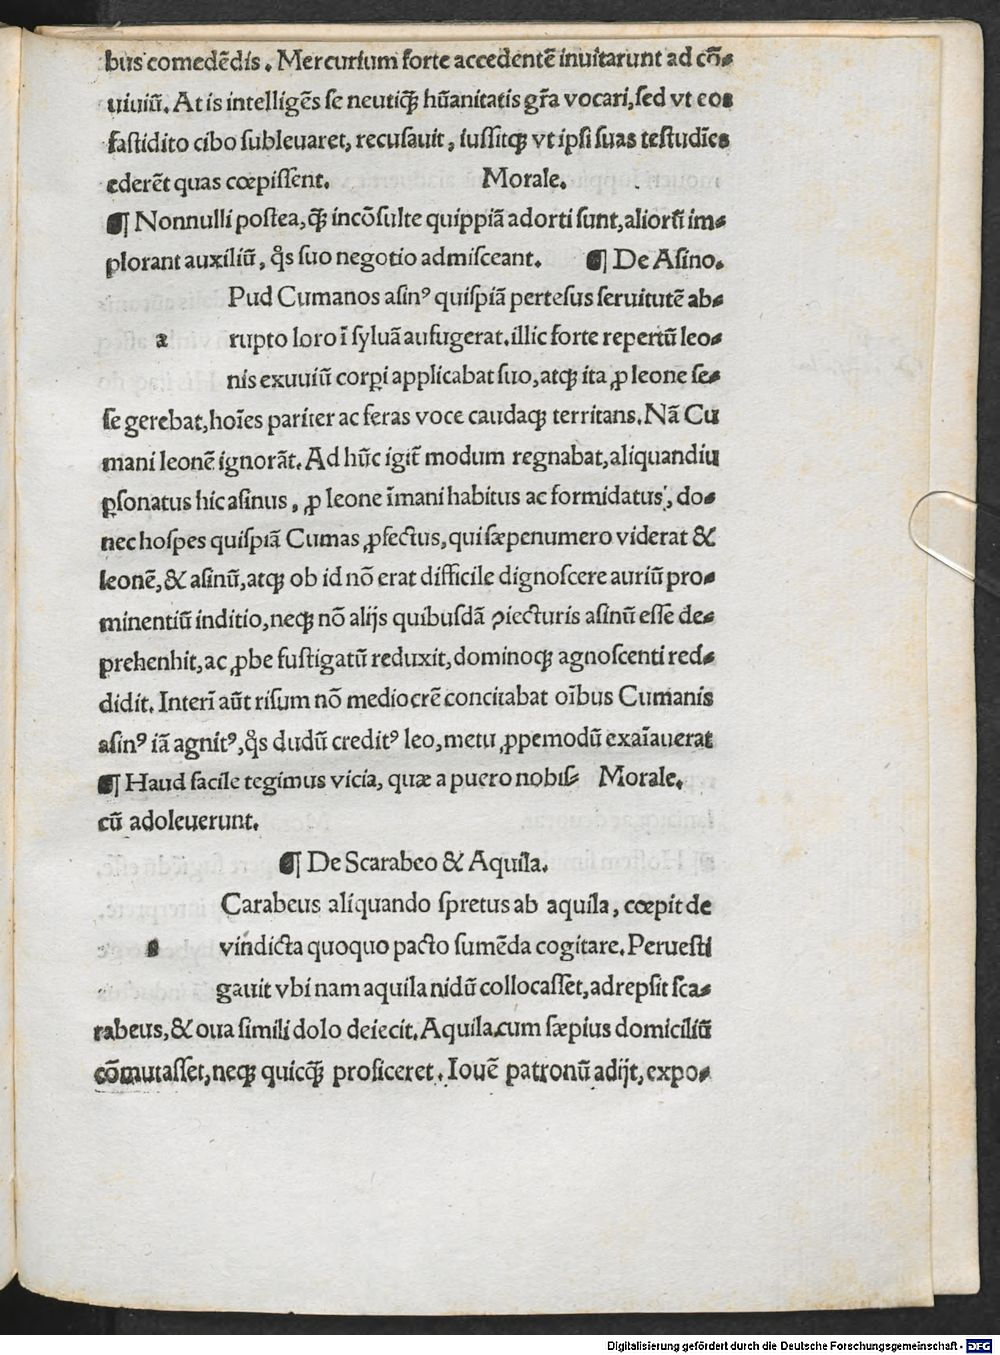 bus comedēdis. Mercurium forte accedentē inuitarunt ad cō⸗
uiuiū. At is intelligēs se neutiqȝ̄ hūanitatis gr̄a vocari, sed vt eos
fastidito cibo subleuaret, recusauit, iussitqȝ vt ipsi suas testudīes
ederēt quas cœpissent. Morale.
¶ Nonnulli postea, qȝ̄ incōsulte quippiā adorti sunt, aliorū im⸗
plorant auxiliū, qͦs suo negotio admisceant. ¶ De Asino.
Pud Cumanos asinꝰ quispiā pertesus seruitutē ab⸗
a rupto loro ī syluā aufugerat. illic forte repertū leo⸗
nis exuuiū corpi applicabat suo, atqȝ ita ꝓ leone se⸗
se gerebat, hoīes pariter ac feras voce caudaqȝ territans. Nā Cu
mani leonē ignorāt. Ad hūc igit̄ modum regnabat, aliquandiu
ꝑsonatus hic asinus, ꝓ leone īmani habitus ac formidatus, do⸗
nec hospes quispiā Cumas ꝓfectus, qui sæpenumero viderat &
leonē, & asinū, atqȝ ob id nō erat difficile dignoscere auriū pro⸗
minentiū inditio, neqȝ nō alijs quibusdā ꝯiecturis asinū esse de⸗
prehenhit, ac ꝓbe fustigatū reduxit, dominoqȝ agnoscenti red⸗
didit. Interī aūt risum nō mediocrē concitabat oībus Cumanis
asinꝰ iā agnitꝰ, qͦs dudū creditꝰ leo, metu ꝓpemodū exaīauerat
¶ Haud facile tegimus vicia, quæ a puero nobis⸗ Morale.
cū adoleuerunt.
¶ De Scarabeo & Aquila.
Carabeus aliquando spretus ab aquila, cœpit de
s vindicta quoquo pacto sumēda cogitare. Peruesti
gauit vbi nam aquila nidū collocasset, adrepsit sca⸗
rabeus, & oua simili dolo deiecit. Aquila cum sæpius domiciliū
cōmutasset, neqȝ quicqȝ̄ proficeret. Iouē patronū adijt, expo⸗
Digitalisierung gefördert durch die Deutsche Forschungsgemeinschaft - DFG